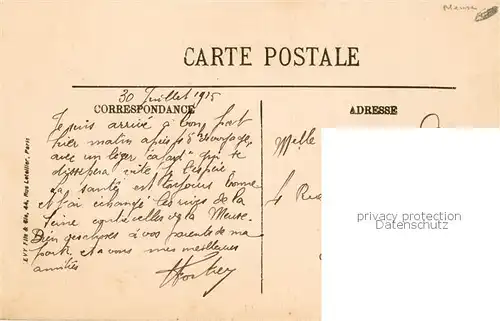 Meuse
CARTE POSTALE
30 Juillet 1915
CORRESPONDANCE
ADRESSE
Je suis arrivé à bon port
hier matin après
avec un léger "cafard" qui se
dissipera vite j'espère
La santé est toujours bonne
et j'ai échangé les rives de la
Seine contre celles de la Meuse.
Bien des choses à vos parents de ma
part, et à vous mes meilleures
amitiés
Melle
4 Rue
privacy protection
Schutz Privatsphäre
LEVY Fils & Cie, 44, Rue Letellier, Paris